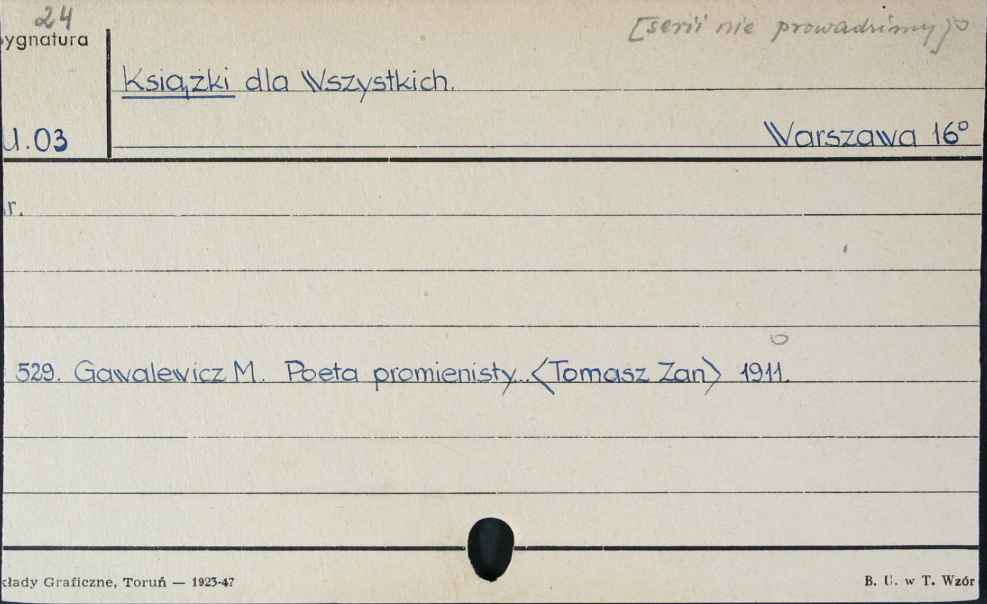 24 [serii nie prowadzimy]
ygnatura
Książki dla Wszystkich.
U.03 Warszawa 16°
nr.
529. Gawalewicz M. Poeta promienisty..<Tomasz Zan> 1911.
kłady Graficzne, Toruń — 1923-47 B. U. w T. Wzór